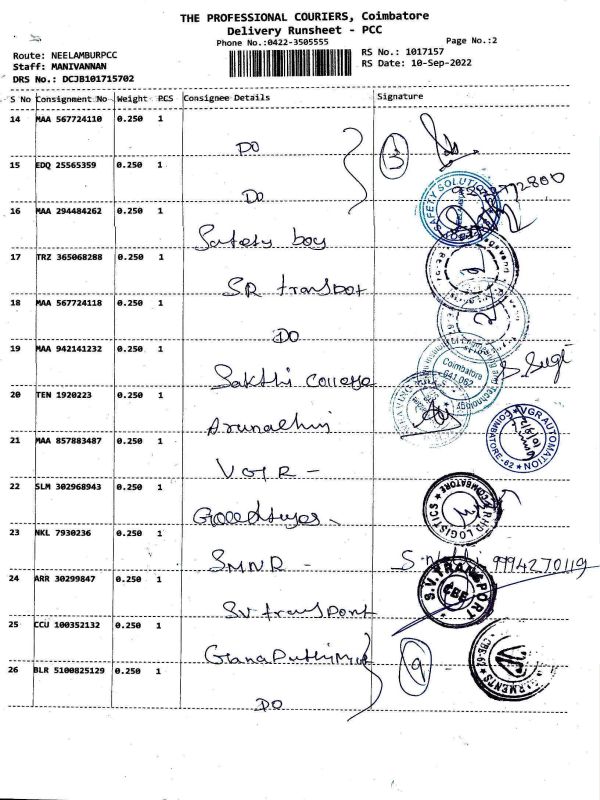 THE PROFESSIONAL COURIERS, Coimbatore
Delivery Runsheet - PCC
Phone No.:0422-3505555
Page No.:2
Route: NEELAMBURPCC
RS No.: 1017157
Staff: MANIVANNAN
RS Date: 10-Sep-2022
DRS No.: DCJB101715702
S No Consignment No Weight PCS Consignee Details Signature
14 MAA 567724110 0.250 1
DO
15 EDQ 25565359 0.250 1
DO
16 MAA 294484262 0.250 1
Safety boy
17 TRZ 365068288 0.250 1
SR transpot
18 MAA 567724118 0.250 1
DO
19 MAA 942141232 0.250 1
Sakthi College
Coimbatore
641 062
20 TEN 1920223 0.250 1
21 MAA 857883487 0.250 1
VGR AUTOMATION
COIMBATORE-62
VGR -
22 SLM 302968943 0.250 1
LOGISTICS
COIMBATORE
23 NKL 7930236 0.250 1
SMNR - 9994270119
24 ARR 30299847 0.250 1
S.V.TRANSPORT
CBE
SV transport
25 CCU 100352132 0.250 1
9
26 BLR 5100825129 0.250 1
GARMENTS
CBE-62
DO